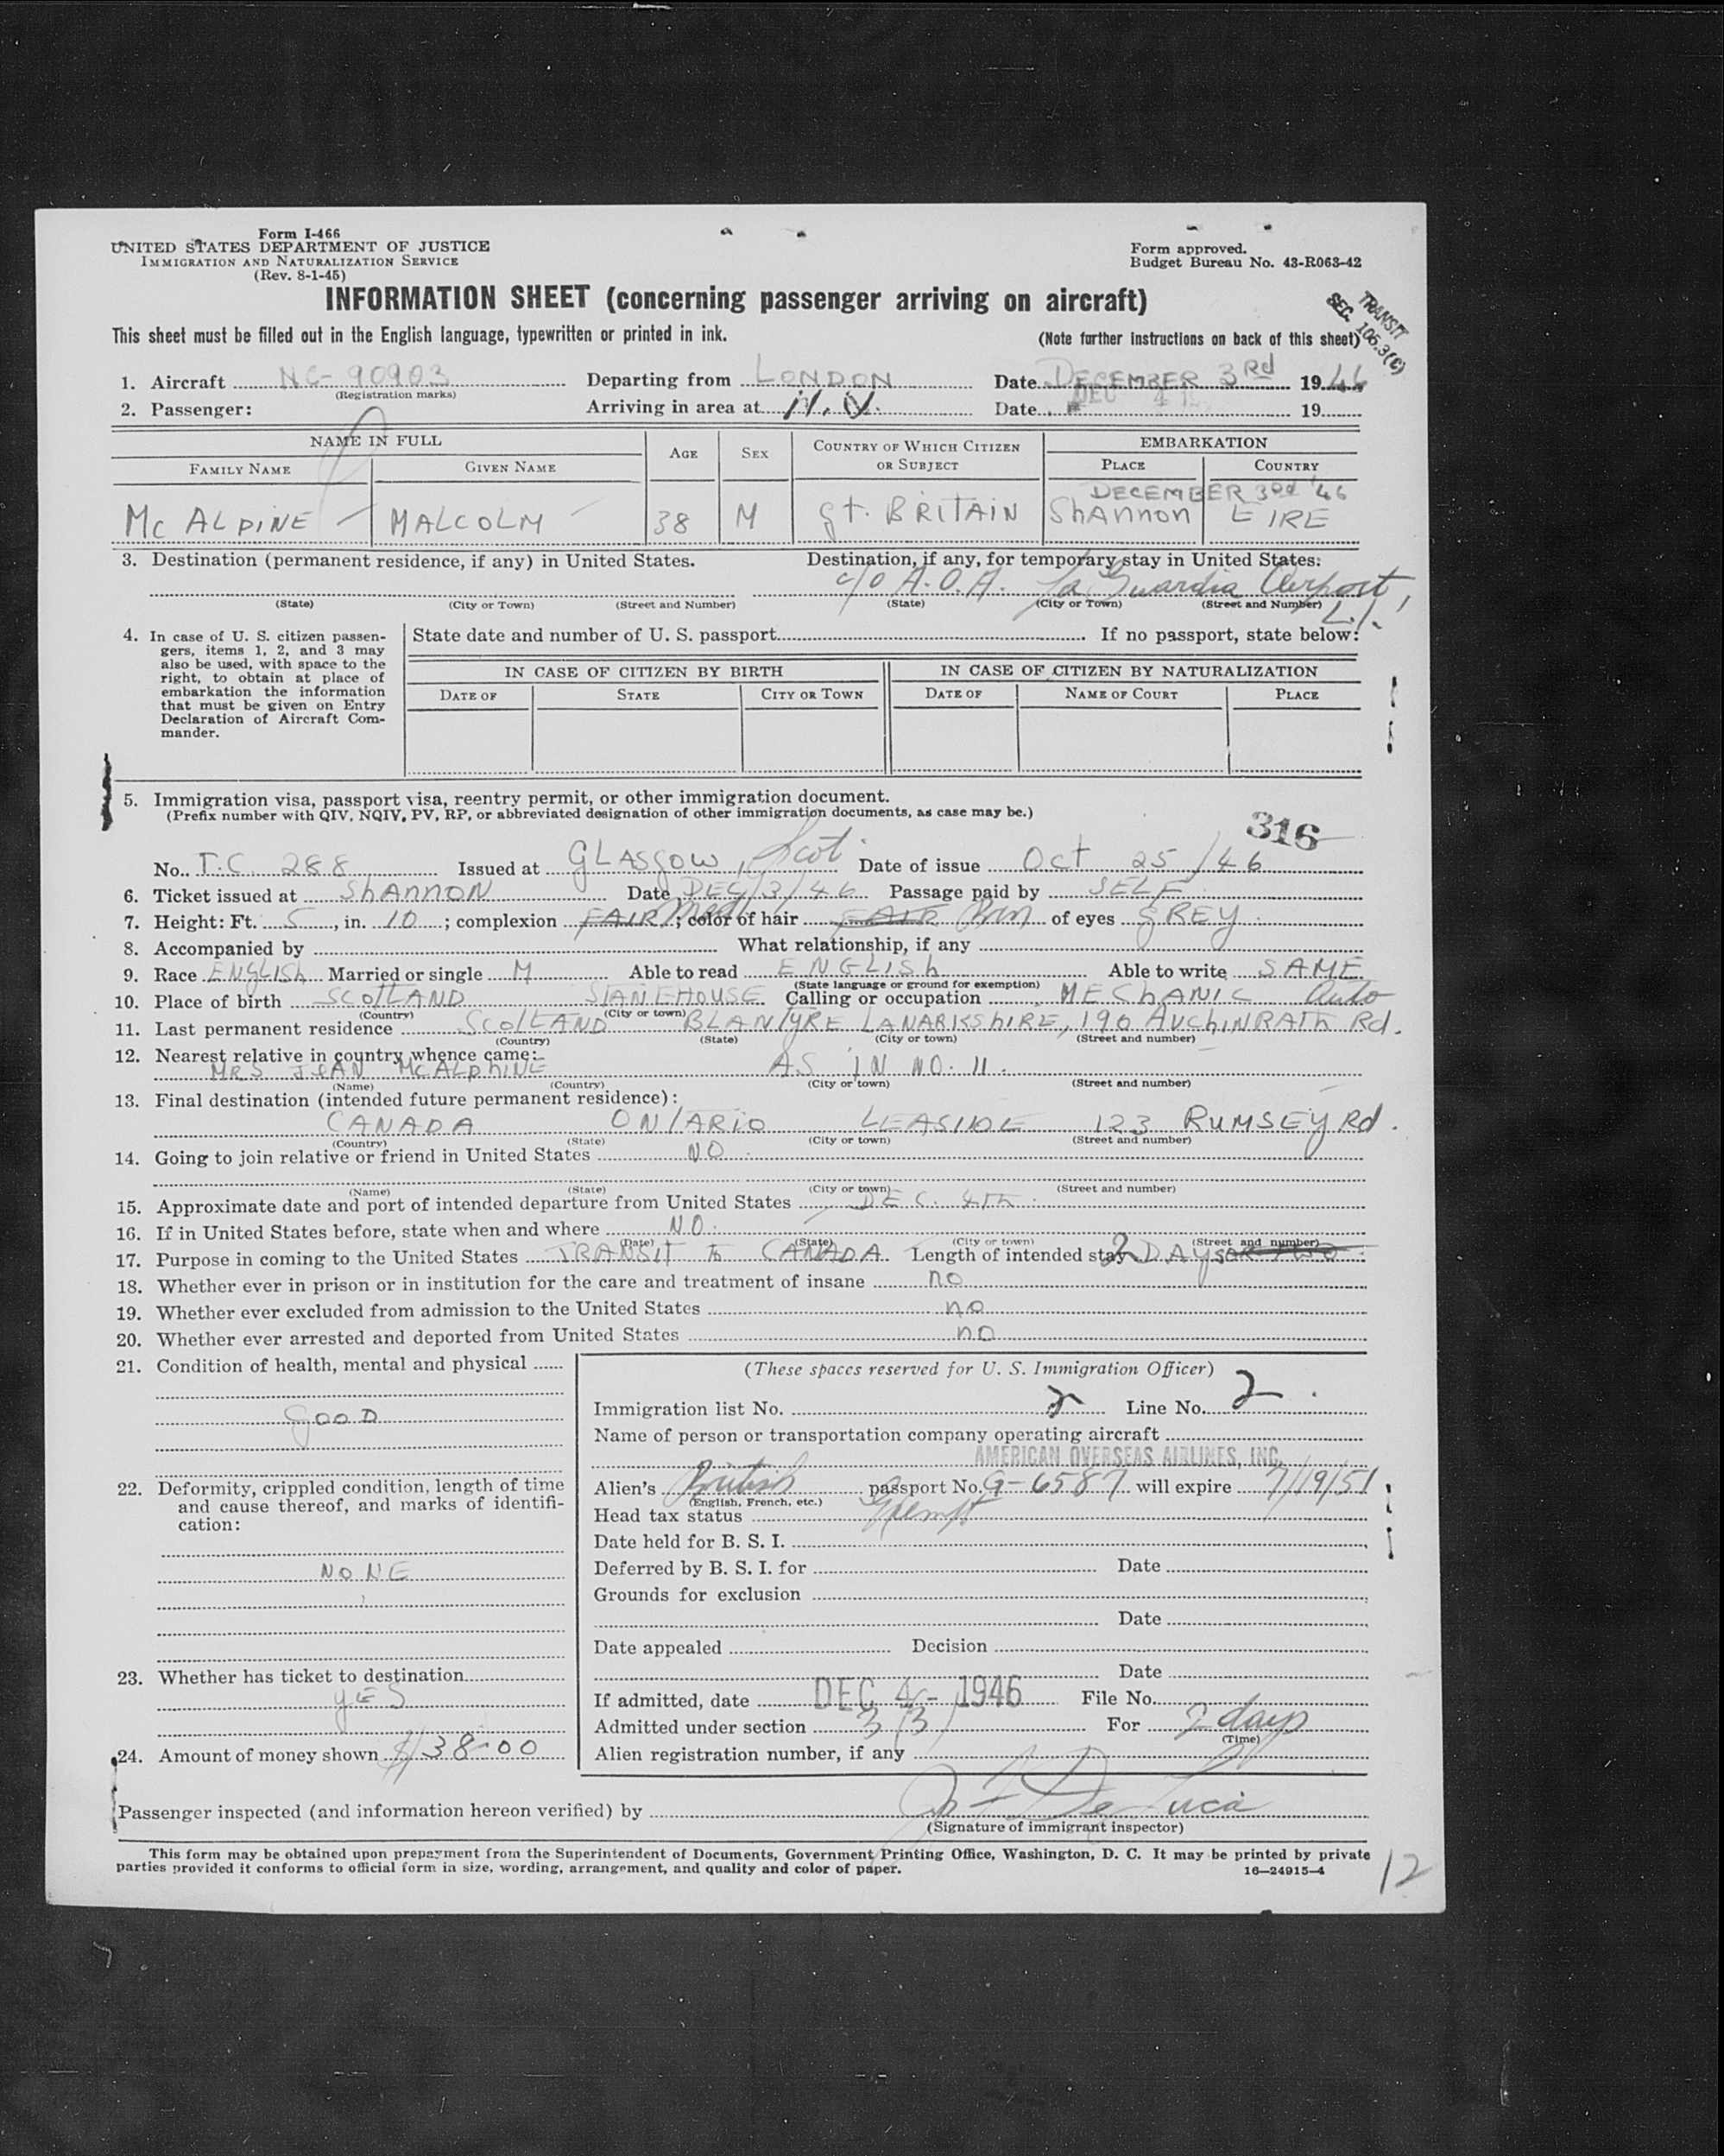 Form I-466
UNITED STATES DEPARTMENT OF JUSTICE
IMMIGRATION AND NATURALIZATION SERVICE
(Rev. 8-1-45)
Form approved.
Budget Bureau No. 43-R063-42
INFORMATION SHEET (concerning passenger arriving on aircraft)
TRANSIT
SEC. 105.3(C)
This sheet must be filled out in the English language, typewritten or printed in ink. (Note further instructions on back of this sheet)
1. Aircraft NC-90903 Departing from LONDON Date DECEMBER 3Rd 1946
(Registration marks)
2. Passenger: Arriving in area at N.Y. Date DEC 4 19
NAME IN FULL AGE SEX COUNTRY OF WHICH CITIZEN OR SUBJECT EMBARKATION
FAMILY NAME GIVEN NAME PLACE COUNTRY
DECEMBER 3rd '46
Mc ALPINE MALCOLM 38 M Gt. BRITAIN ShAnnon EIRE
3. Destination (permanent residence, if any) in United States. Destination, if any, for temporary stay in United States:
c/o A.O.A. La Guardia Airport, L.I.
(State) (City or Town) (Street and Number) (State) (City or Town) (Street and Number)
4. In case of U. S. citizen passengers, items 1, 2, and 3 may also be used, with space to the right, to obtain at place of embarkation the information that must be given on Entry Declaration of Aircraft Commander.
State date and number of U. S. passport If no passport, state below:
IN CASE OF CITIZEN BY BIRTH IN CASE OF CITIZEN BY NATURALIZATION
DATE OF STATE CITY OR TOWN DATE OF NAME OF COURT PLACE
5. Immigration visa, passport visa, reentry permit, or other immigration document.
(Prefix number with QIV, NQIV, PV, RP, or abbreviated designation of other immigration documents, as case may be.)
316
No. T.C. 288 Issued at GLASGOW, Scot. Date of issue Oct 25/46
6. Ticket issued at ShANNON Date DEC/3/46 Passage paid by SELF
7. Height: Ft. 5, in. 10; complexion FAIR Med; color of hair FAIR Brn of eyes GREY
8. Accompanied by What relationship, if any
9. Race ENGLISh Married or single M Able to read ENGLISh Able to write SAME
(State language or ground for exemption)
10. Place of birth SCOTLAND STANEHOUSE Calling or occupation MEChANIC Auto
(Country) (City or town)
11. Last permanent residence SCOTLAND BLANTYRE LANARKShIRE, 190 AUChINRATh Rd.
(Country) (State) (City or town) (Street and number)
12. Nearest relative in country whence came:
MRS JEAN McALPhINE AS IN NO. 11.
(Name) (Country) (City or town) (Street and number)
13. Final destination (intended future permanent residence):
CANADA ONTARIO LEASIDE 123 RUMSEY Rd.
(Country) (State) (City or town) (Street and number)
14. Going to join relative or friend in United States NO
(Name) (State) (City or town) (Street and number)
15. Approximate date and port of intended departure from United States DEC. 4Th.
16. If in United States before, state when and where NO.
(Date) (State) (City or town) (Street and number)
17. Purpose in coming to the United States TRANSIT To CANADA Length of intended stay 2 DAYS OR TWO
18. Whether ever in prison or in institution for the care and treatment of insane no
19. Whether ever excluded from admission to the United States no
20. Whether ever arrested and deported from United States no
21. Condition of health, mental and physical
GOOD
22. Deformity, crippled condition, length of time and cause thereof, and marks of identification:
NONE
23. Whether has ticket to destination
YES
24. Amount of money shown $138.00
(These spaces reserved for U. S. Immigration Officer)
Immigration list No. 2 Line No. 2
Name of person or transportation company operating aircraft
AMERICAN OVERSEAS AIRLINES, INC.
Alien's British passport No. G-6587 will expire 7/19/51
(English, French, etc.)
Head tax status Exempt
Date held for B. S. I.
Deferred by B. S. I. for Date
Grounds for exclusion
Date
Date appealed Decision
Date
If admitted, date DEC 4 - 1946 File No.
Admitted under section 3(3) For 2 days
(Time)
Alien registration number, if any
Passenger inspected (and information hereon verified) by De Luca
(Signature of immigrant inspector)
This form may be obtained upon prepayment from the Superintendent of Documents, Government Printing Office, Washington, D. C. It may be printed by private
parties provided it conforms to official form in size, wording, arrangement, and quality and color of paper. 16—24915-4
12